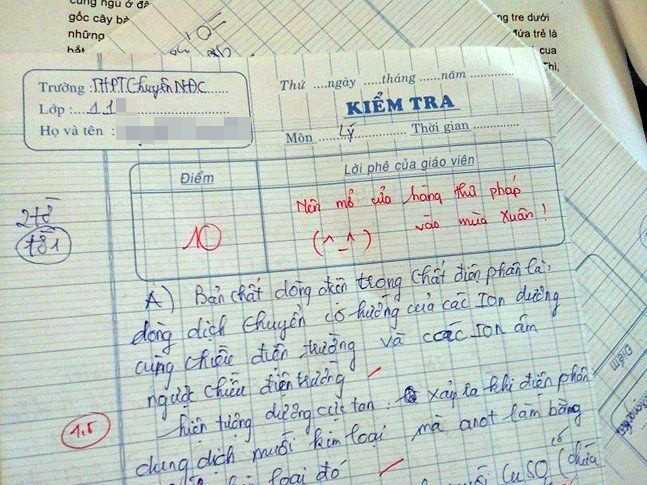 cung ngủ ở đâ
gốc cây bà
những
hắt
ng tre dưới
đứa trẻ là
cua
Thi,
10
Trường : THPT Chuyên NĐC
Lớp : 11
Họ và tên :
Thứ ....ngày .....tháng ......năm
KIỂM TRA
Môn Lý Thời gian
Điểm
Lời phê của giáo viên
10
Nên mở cửa hàng thư pháp
(^_^) vào mùa xuân !
2tờ
tờ1
A) Bản chất dòng điện trong chất điện phân là:
dòng dịch chuyển có hướng của các Ion dương
cùng chiều điện trường và các Ion âm
ngược chiều điện trường
hiện tượng dương cực tan : xảy ra khi điện phân
1,5
dung dịch muối kim loại mà anot làm bằng
loại đó
muối CuSO (chứa
Điểm